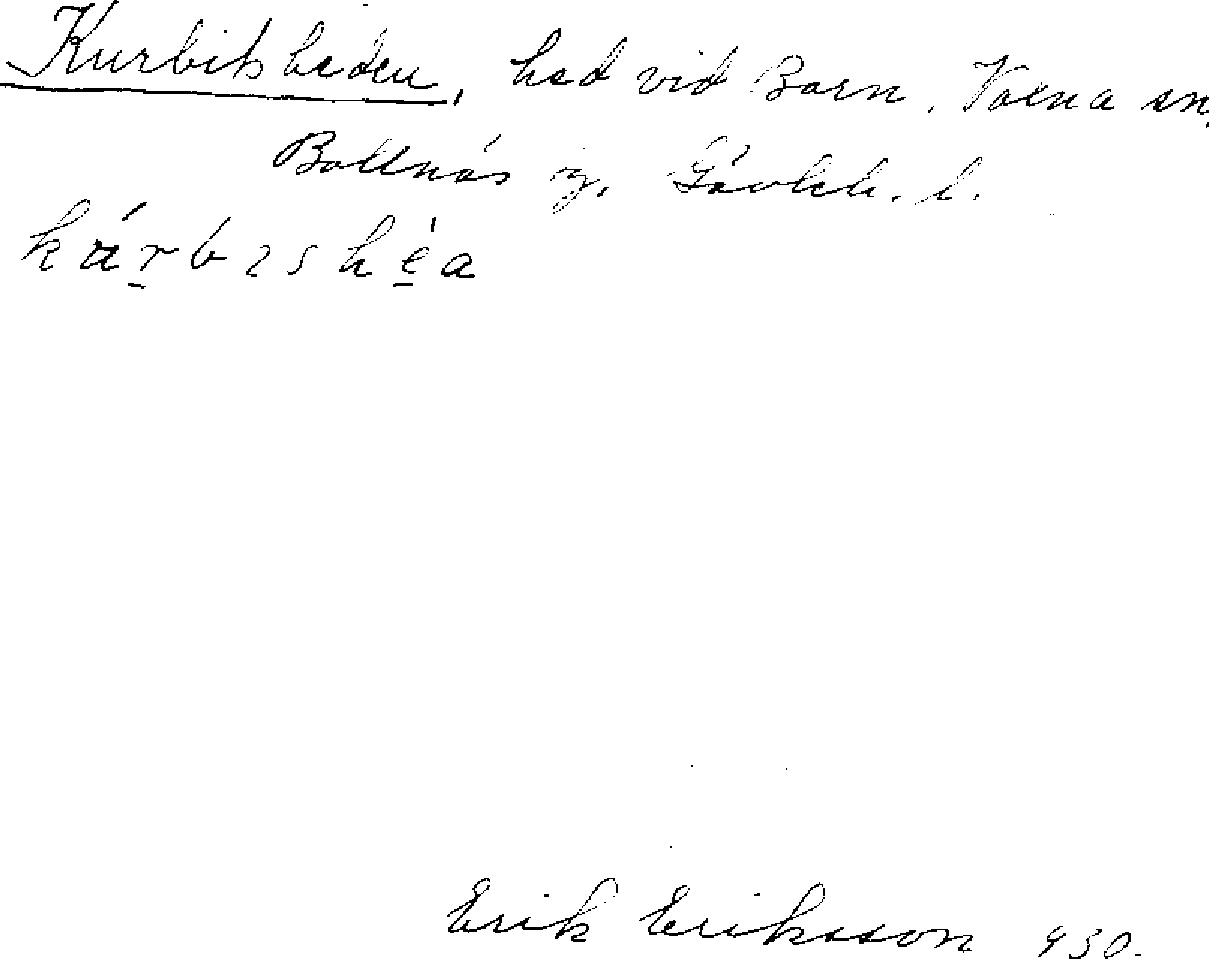 Kurbitsheden, hed vid Born, Voxna sn,
Bollnäs tg, Gävleb. l.
kárbɪshéa
Erik Eriksson 930.